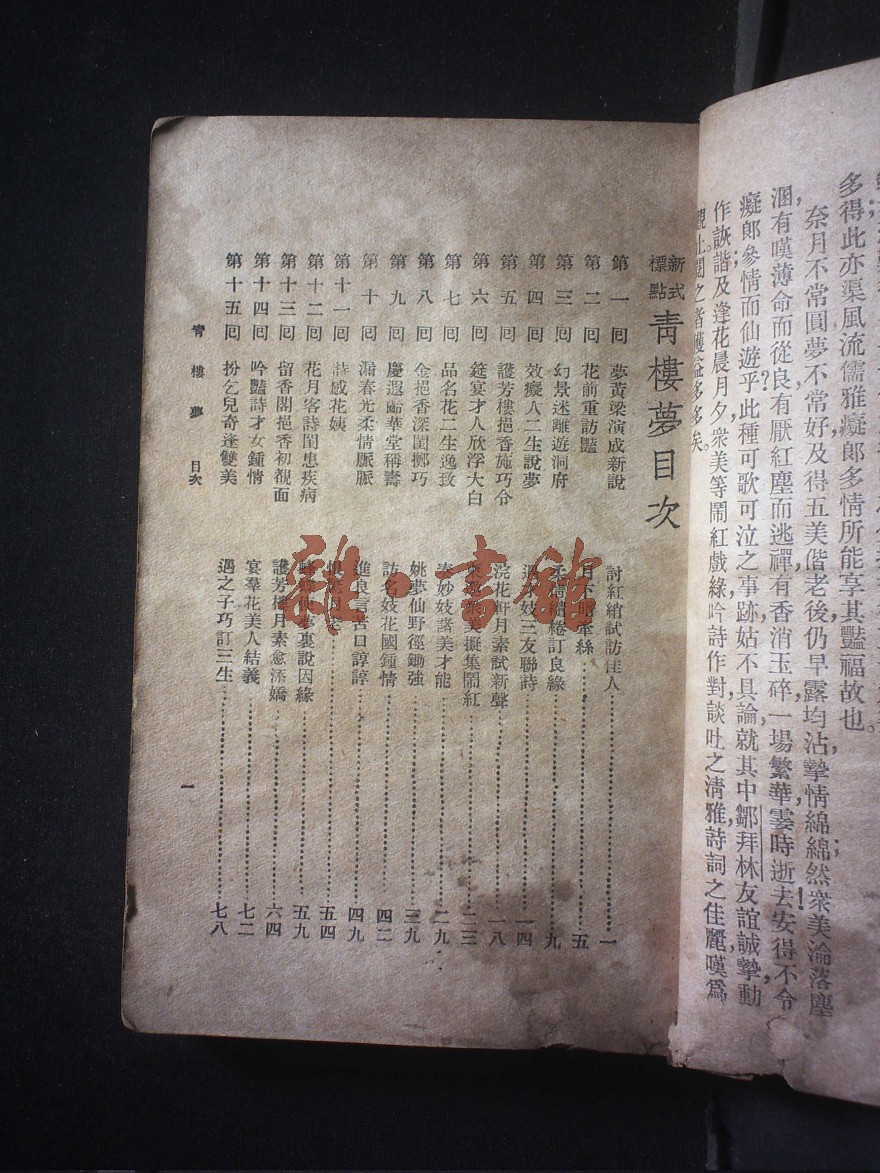 多得此亦渠風流儒雅癡郎多情所能享其豔福故也。
奈月不常圓夢不常好及得五美偕老後仍早露均沾摯情綿綿然衆美淪落塵
溷有嘆薄命而從良有厭紅塵而逃禪有香消玉碎一場繁華霎時逝去安得不令
癡郎參情而仙遊乎此種可歌可泣之事跡姑不具論就其中鄒拜林友誼誠摯動
作詼諧及逢花晨月夕衆美等鬧紅戲綠吟詩作對談吐之清雅詩詞之佳麗嘆爲
觀止閱之者獲益多多矣。
新式標點 青樓夢目次
第一回 夢黃粱演成新說 討紅綃試訪佳人 一
第二回 花前重訪豔 五
第三回 幻景迷離遊洞府 繾綣訂良緣 九
第四回 效癡人二生說夢 三友聯詩 一四
第五回 護芳樓挹香施巧令 浣花軒月素試新聲 一八
第六回 筵宴才人欣浮大白 衆美擬集鬧紅 二三
第七回 品名花二生逸致 妙妓諸美才能 二九
第八回 金挹香深閨擲巧 姚夢仙野徑鋤強 三九
第九回 慶遐齡華堂稱壽 訪名妓花國鍾情 四二
第十回 漏春光柔情脈脈 進良言苦口諄諄 四九
第十一回 詩感花姨 五四
第十二回 花月客詩閨患疾病 夢裏說因緣 五九
第十三回 留香閣挹香初覯面 護芳樓月素愈添嬌 六四
第十四回 吟豔詩才女鍾情 宴羣花美人結義 七二
第十五回 扮乞兒奇逢雙美 遇之子巧訂三生 七八
青樓夢 目次
一
雜·書館